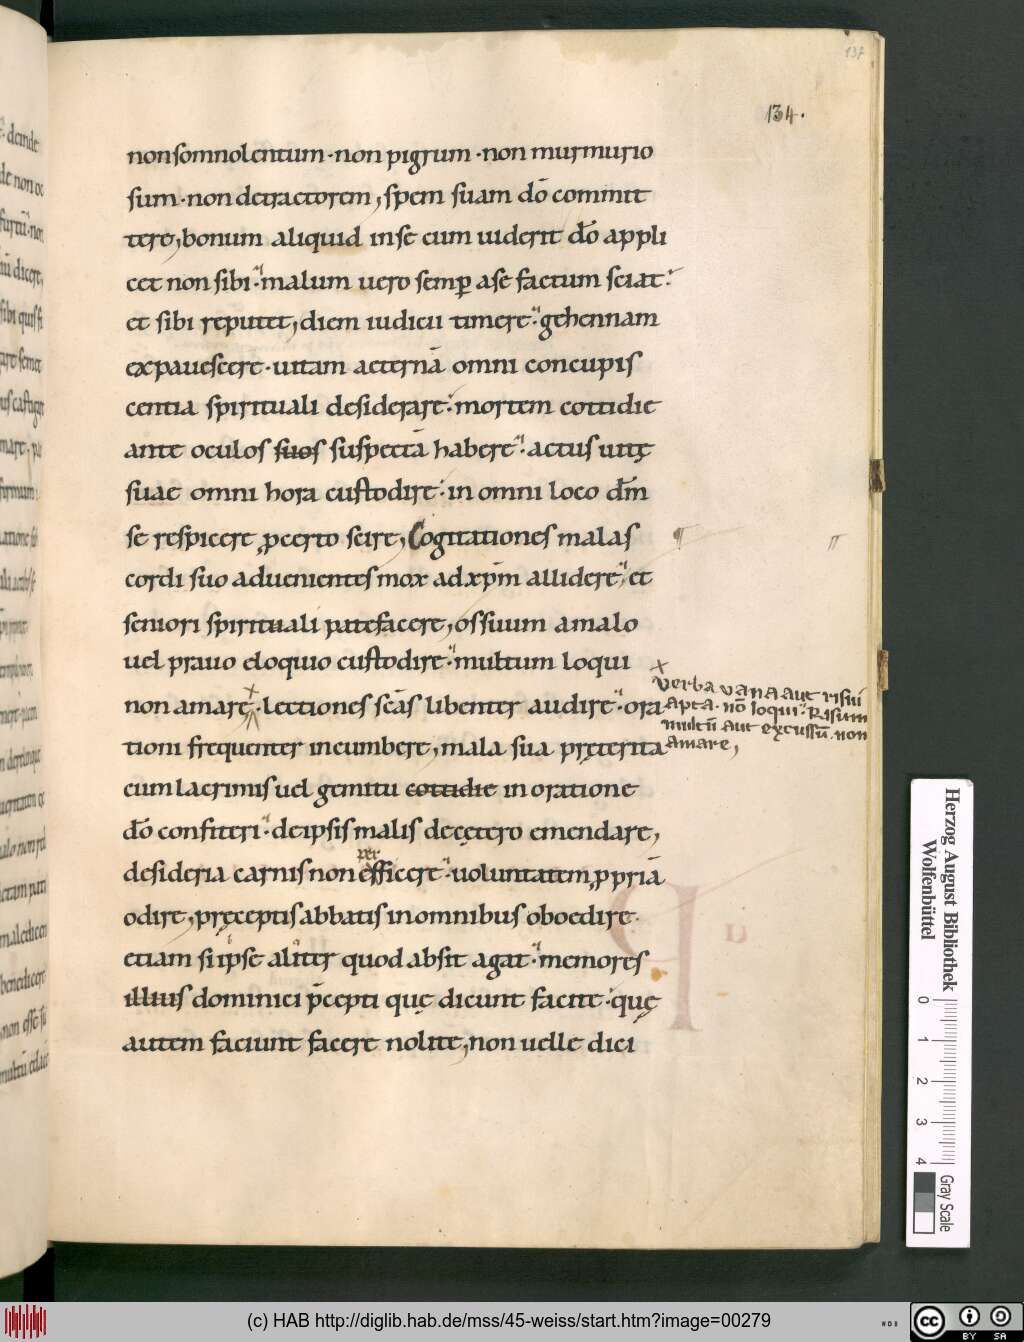 137
134.
non somnolentum · non pigrum · non murmurio
sum · non detractorem, spem suam dō commit
tere, bonum aliquid in se cum uiderit dō appli
cet non sibi · malum uero semꝑ a se factum sciat ·
et sibi reputet, diem iudicii timere · gehennam
expauescere · uitam aeternā omni concupis
centia spirituali desiderare · mortem cottidie
ante oculos suos suspectā habere · actus uitę
suae omni hora custodire · in omni loco dm̄
se respicere ꝓ certo scire, Cogitationes malas
cordi suo aduenientes mox ad xp̄m allidere · et
seniori spirituali patefacere, os suum a malo
uel prauo eloquio custodire · multum loqui
non amare · lectiones scās libenter audire · ora
tioni frequenter incumbere, mala sua pręterita
cum lacrimis uel gemitu cottidie in oratione
dō confiteri · de ipsis malis de cętero emendare,
desideria carnis non efficere · uoluntatem ꝓpriā
per
odire, pręceptis abbatis in omnibus oboedire
etiam si ipse aliter quod absit agat · memores
illius dominici p̄cepti quę dicunt facite · quę
autem faciunt facere nolite, non uelle dici
verba vana aut risui
apta · nō loqui · Risum
multū aut excussū · non
amare,
Herzog August Bibliothek
Wolfenbüttel
0 1 2 3 4
Gray Scale
(c) HAB http://diglib.hab.de/mss/45-weiss/start.htm?image=00279
cc BY SA